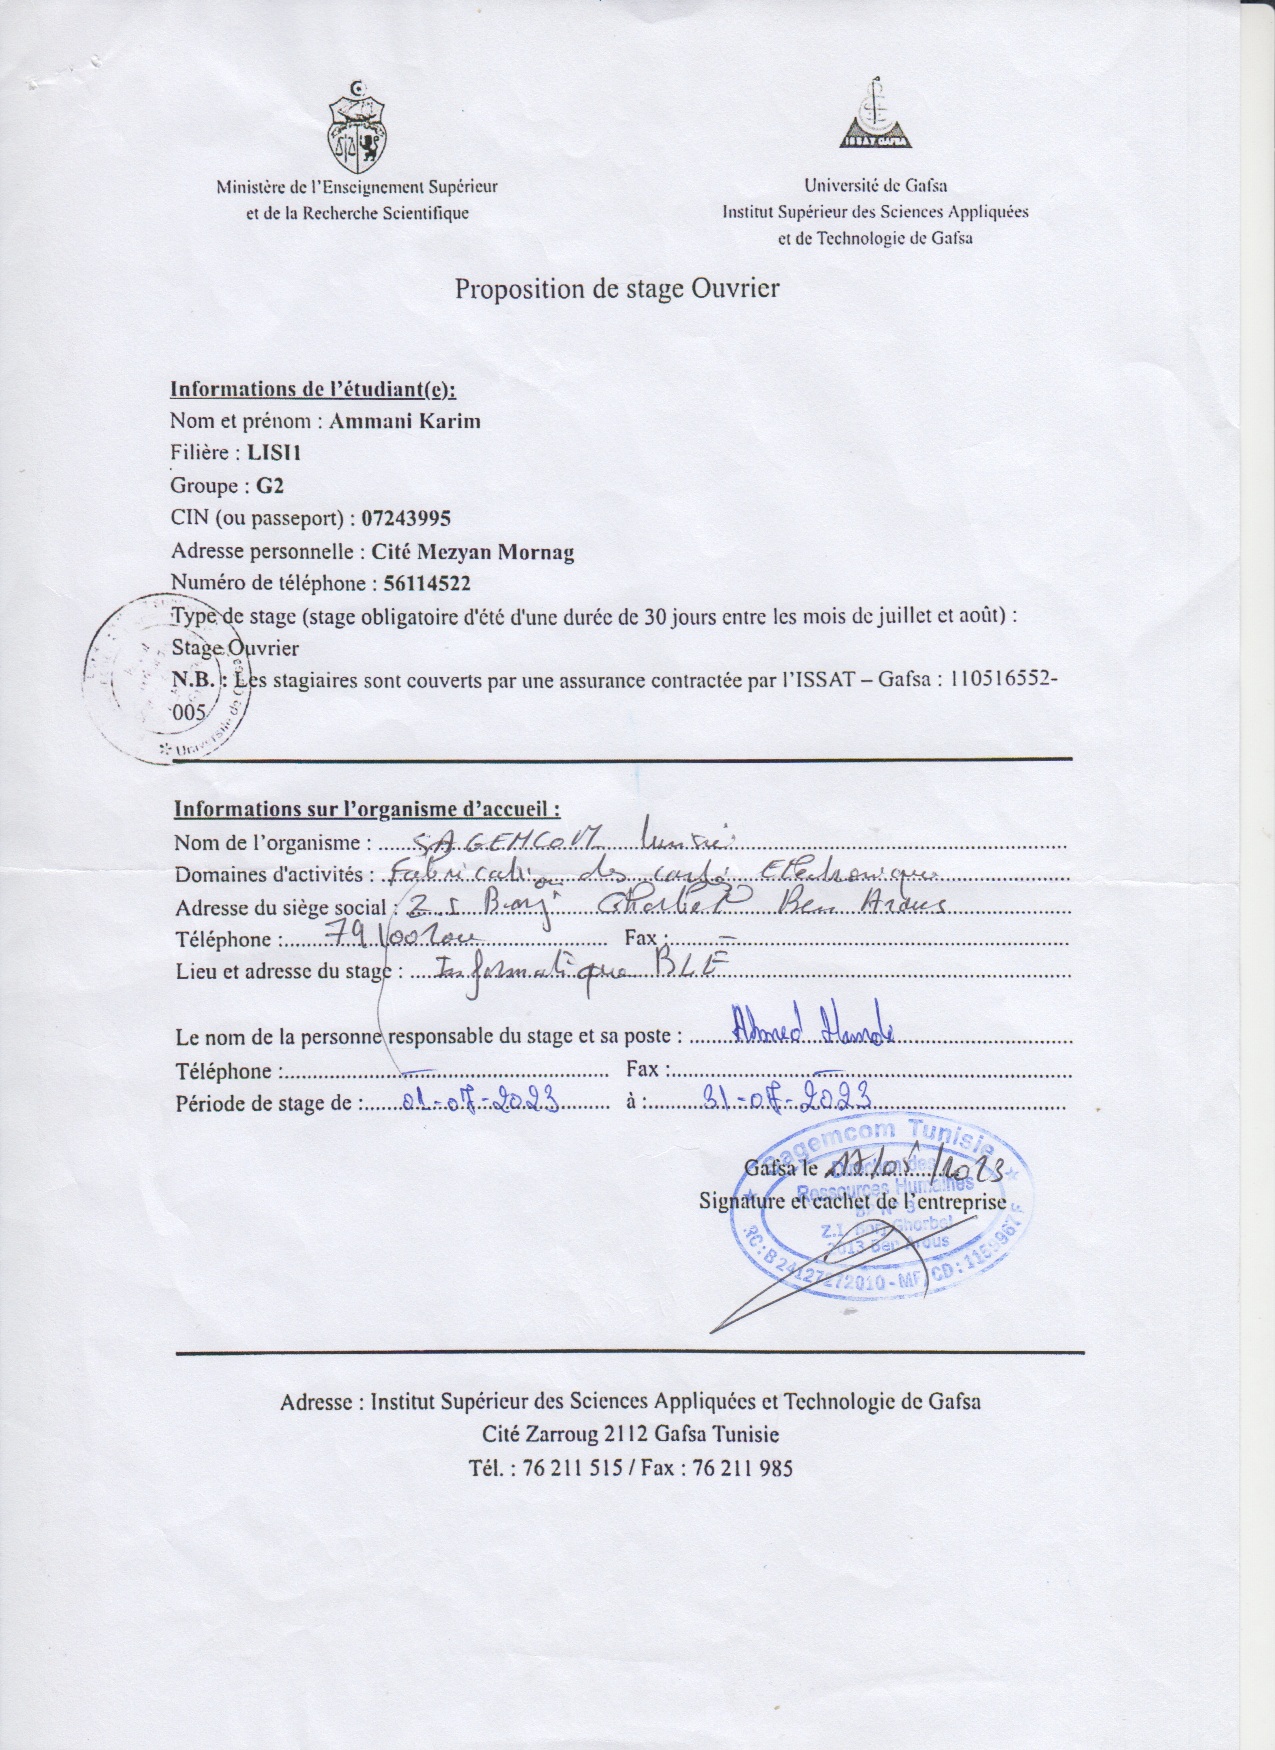 ISSAT GAFSA
Ministère de l'Enseignement Supérieur
et de la Recherche Scientifique
Université de Gafsa
Institut Supérieur des Sciences Appliquées
et de Technologie de Gafsa
Proposition de stage Ouvrier
Informations de l'étudiant(e):
Nom et prénom : Ammani Karim
Filière : LISI1
Groupe : G2
CIN (ou passeport) : 07243995
Adresse personnelle : Cité Mezyan Mornag
Numéro de téléphone : 56114522
Type de stage (stage obligatoire d'été d'une durée de 30 jours entre les mois de juillet et août) :
Stage Ouvrier
N.B. : Les stagiaires sont couverts par une assurance contractée par l'ISSAT – Gafsa : 110516552-
005
Informations sur l'organisme d'accueil :
Nom de l'organisme : SAGEMCOM Tunisie
Domaines d'activités : Fabrication des carte Electronique
Adresse du siège social : Z.I Borj Ghorbel Ben Arous
Téléphone : Fax : –
Lieu et adresse du stage : Informatique BLE
Le nom de la personne responsable du stage et sa poste : Ahmed
Téléphone : – Fax : –
Période de stage de : 01-07-2023 à : 31-07-2023
Sagemcom Tunisie
Gafsa le 17/05/2023
Direction des
Ressources Humaines
Signature et cachet de l'entreprise
Z.I. Borj Ghorbel
2013 Ben Arous
Adresse : Institut Supérieur des Sciences Appliquées et Technologie de Gafsa
Cité Zarroug 2112 Gafsa Tunisie
Tél. : 76 211 515 / Fax : 76 211 985